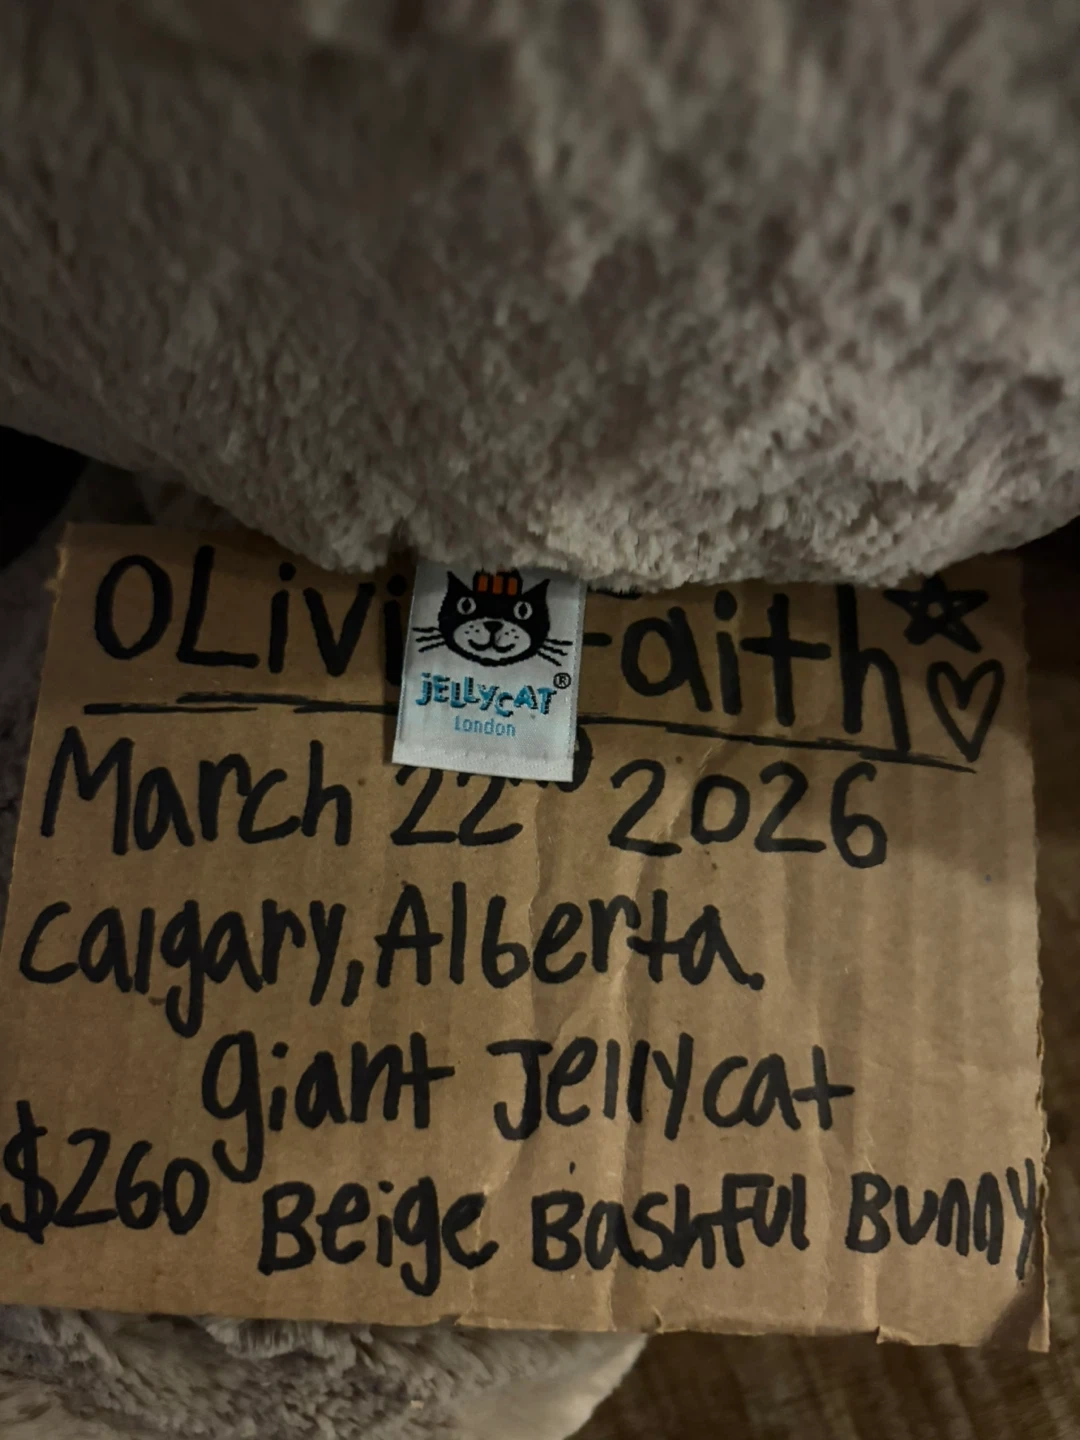 OLivi Faith
JELLYCAT®
London
March 22ND 2026
Calgary, Alberta.
giant Jellycat
$260
Beige Bashful Bunny